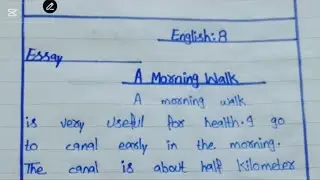 English:B
Essay
A Morning Walk
A morning walk
is very useful for health. I go
to canal early in the morning.
The canal is about half kilometer